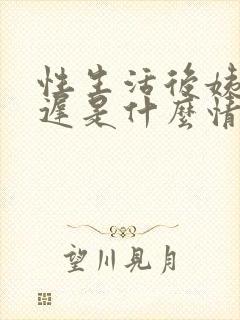 性生活後姨
遲是什麼情
望川見月